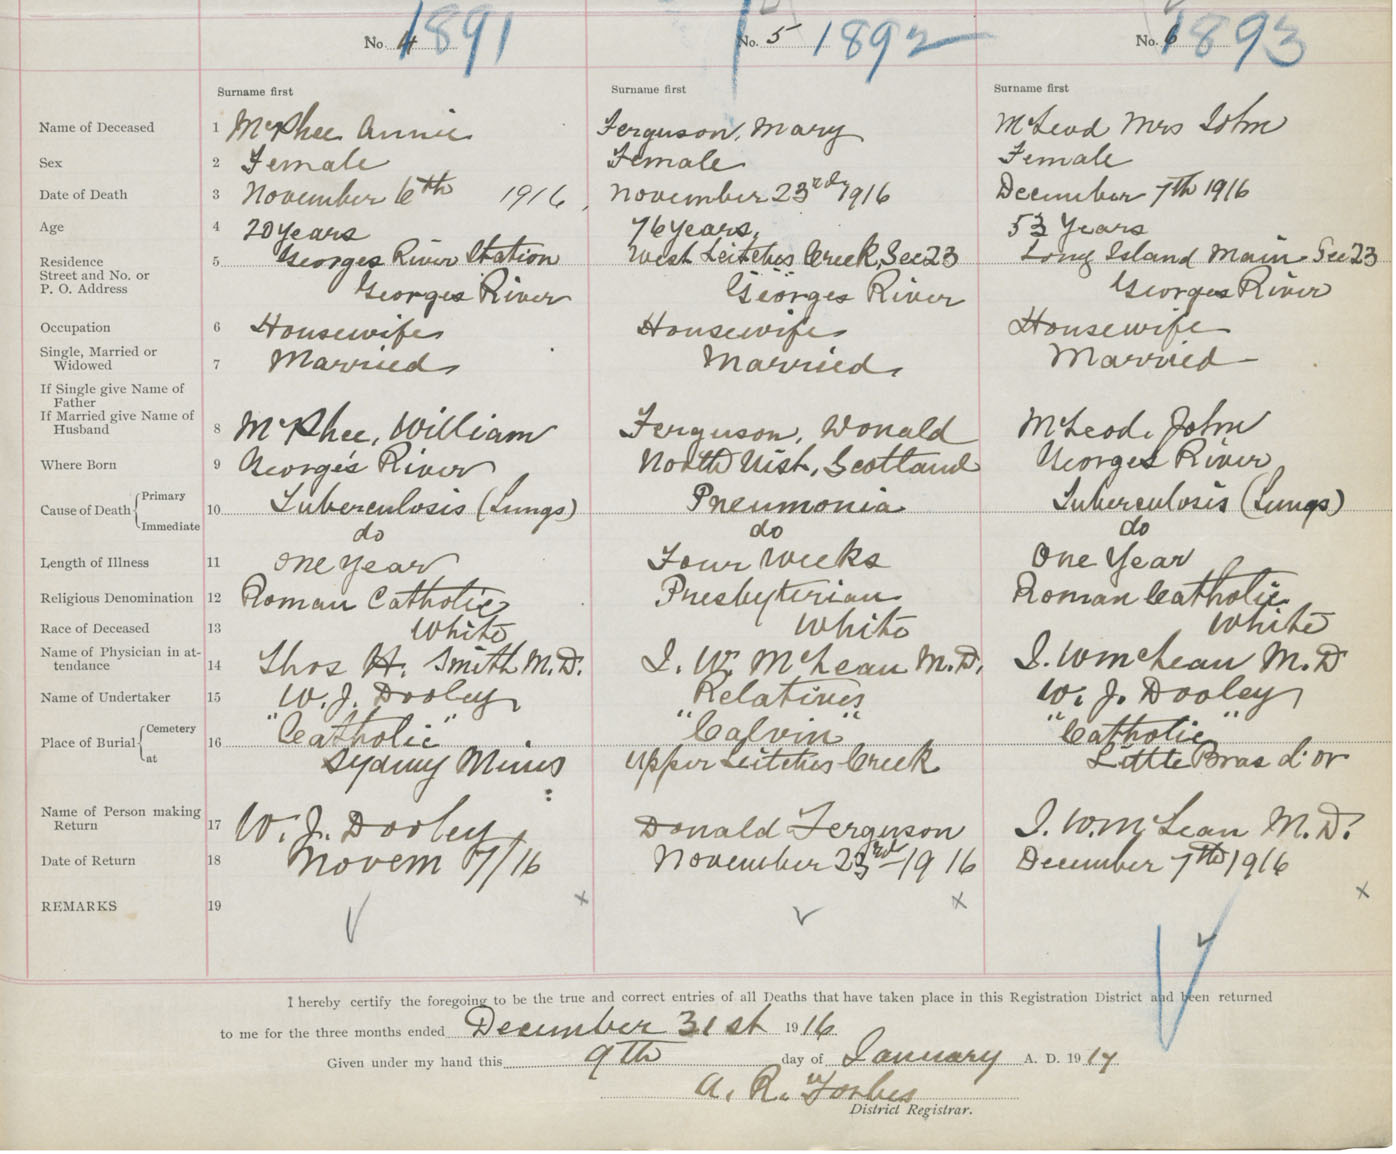 No. 4 1891 No. 5 1892 No. 6 1893
Surname first Surname first Surname first
Name of Deceased 1 McPhee Annie Ferguson, Mary McLeod Mrs John
Sex 2 Female Female Female
Date of Death 3 November 6th 1916, November 23rd 1916 December 7th 1916
Age 4 20 years 76 years, 53 Years
Residence 5 Georges River Station West Leitches Creek, Sec 23 Long Island Main Sec 23
Street and No. or
P. O. Address Georges River Georges River Georges River
Occupation 6 Housewife Housewife Housewife
Single, Married or
Widowed 7 Married Married Married
If Single give Name of
Father
If Married give Name of
Husband 8 McPhee, William Ferguson, Donald McLeod, John
Where Born 9 George's River North Uist, Scotland Georges River
Cause of Death Primary 10 Tuberculosis (Lungs) Pneumonia Tuberculosis (Lungs)
Immediate do do do
Length of Illness 11 One year Four Weeks One Year
Religious Denomination 12 Roman Catholic Presbyterian Roman Catholic
Race of Deceased 13 White White White
Name of Physician in at-
tendance 14 Thos H. Smith M.D. J. W. McLean M.D. J. W McLean M.D
Name of Undertaker 15 W. J. Dooley Relatives W. J. Dooley
Place of Burial Cemetery 16 "Catholic" "Calvin" "Catholic"
at Sydney Mines Upper Leitches Creek Little Bras d'or
Name of Person making
Return 17 W. J. Dooley Donald Ferguson J. W. McLean M.D.
Date of Return 18 Novem 7/16 November 23rd 1916 December 7th 1916
REMARKS 19
I hereby certify the foregoing to be the true and correct entries of all Deaths that have taken place in this Registration District and been returned
to me for the three months ended December 31st 1916
Given under my hand this 9th day of January A. D. 1917
A. R. Forbes
District Registrar.